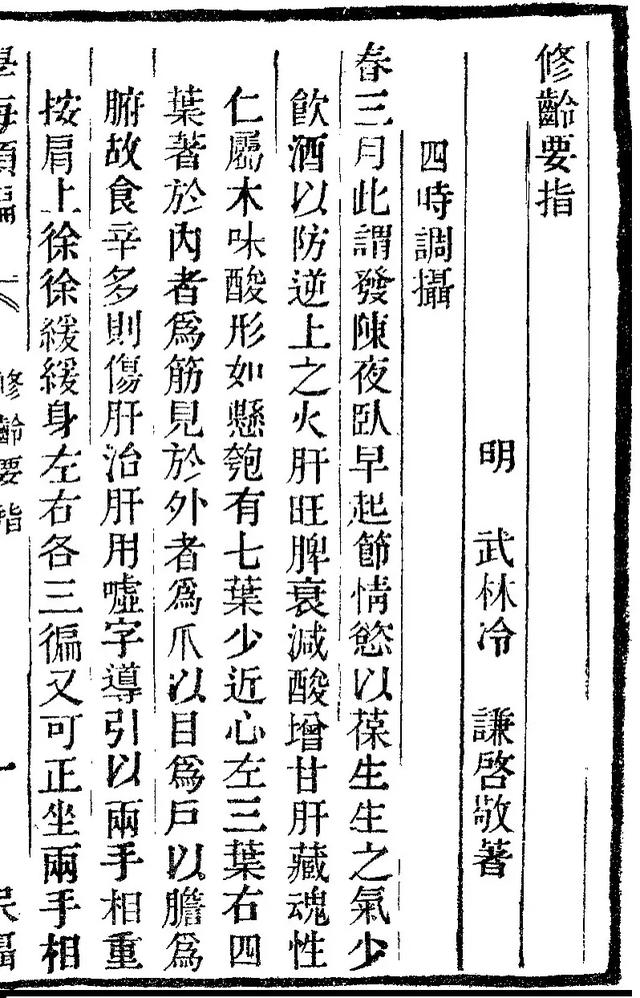 修齡要指
明　武林冷　謙啓敬著
四時調攝
春三月此謂發陳夜臥早起節情慾以葆生生之氣少
飲酒以防逆上之火肝旺脾衰減酸增甘肝藏魂性
仁屬木味酸形如懸匏有七葉少近心左三葉右四
葉著於內者爲筋見於外者爲爪以目爲戶以膽爲
腑故食辛多則傷肝治肝用噓字導引以兩手相重
按肩上徐徐緩緩身左右各三徧又可正坐兩手相
修齡要指